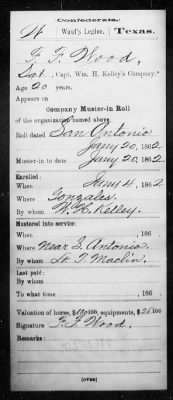 Confederate.
W Waul's Legion. Texas.
F. F. Wood,
Sgt., Capt. Wm. H. Kelley's Company.*
Age 20 years.
Appears on
Company Muster-in Roll
of the organization named above.
Roll dated San Antonio
Jany 20, 1862.
Muster-in to date Jany 20, 1862.
Enrolled:
When Jany 4, 1862
Where Gonzales.
By whom W. H. Kelley.
Mustered into service:
When , 186 .
Where Near S. Antonio.
By whom Lt. T. Maclin.
Last paid:
By whom
To what time , 186 .
Valuation of horse, $ /100; equipments, $25 00/100
Signature F. F. Wood.
Remarks:
(OVER)